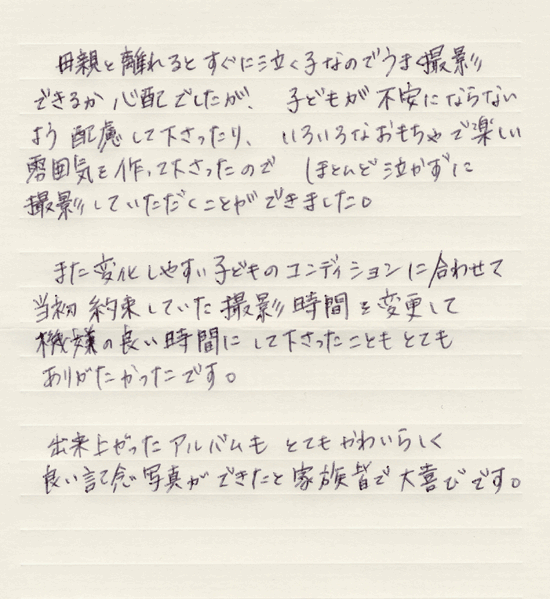 母親と離れるとすぐに泣く子なのでうまく撮影
できるか心配でしたが、 子どもが不安にならない
よう配慮して下さったり、 いろいろなおもちゃで楽しい
雰囲気を作って下さったので ほとんど泣かずに
撮影していただくことができました。
また変化しやすい子どものコンディションに合わせて
当初約束していた撮影時間を変更して
機嫌の良い時間にして下さったこともとても
ありがたかったです。
出来上がったアルバムも とてもかわいらしく
良い記念写真ができたと家族皆で大喜びです。